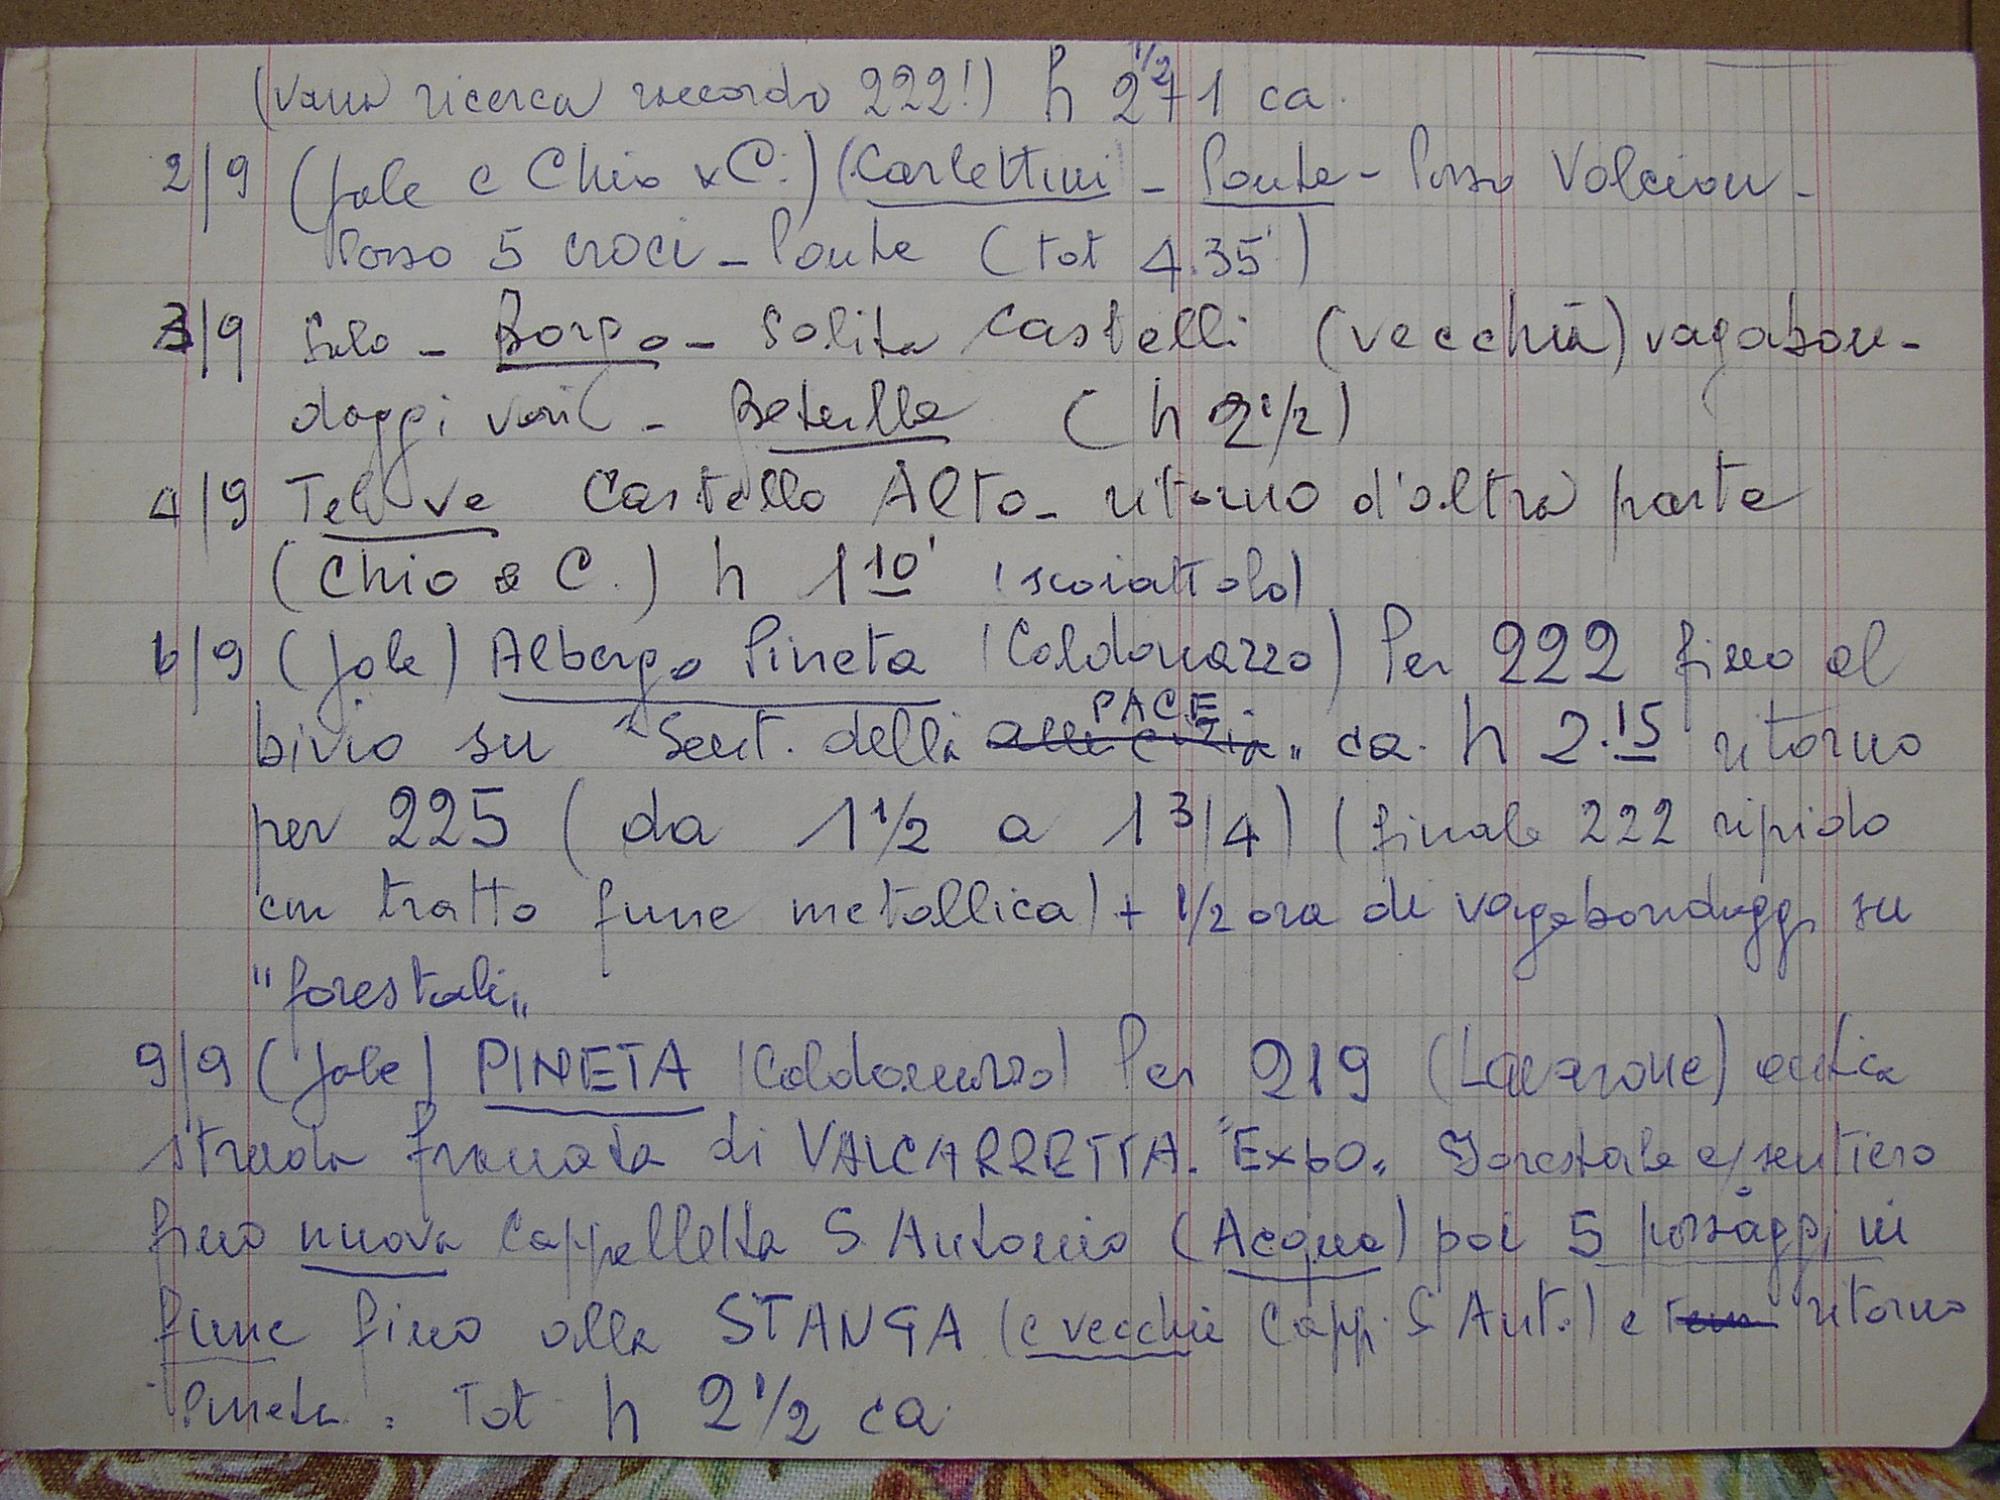 (vana ricerca raccordo 222!) h 2 1/2 + 1 ca.
2/9 (Jole e Chio x C.) (Carlettini - Ponte - Passo Valcion -
Passo 5 croci - Ponte (tot 4.35')
3/9 Solo - Borgo - Solita Castelli (vecchia) vagabon-
daggi vari - (h 2 1/2)
4/9 Telve Castello Alto - ritorno d'altra parte
(Chio e C.) h 1 10' (scoiattolo)
6/9 (Jole) Albergo Pineta (Caldonazzo) Per 222 fino al
bivio su "Sent. della PACE" ca. h 2.15 ritorno
per 225 (da 1 1/2 a 1 3/4) (finale 222 ripido
con tratto fune metallica) + 1/2 ora di vagabondaggi su
"forestali"
9/9 (Jole) PINETA (Caldonazzo) Per 219 (Lavarone) antica
strada franata di VALCARRETTA. "Expo" Forestale e/sentiero
fino nuova Cappelletta S. Antonio (Acqua) poi 5 passaggi in
fune fino alla STANGA (e vecchia Capp. S Ant.) e ritorno
Pineta. Tot h 2 1/2 ca.